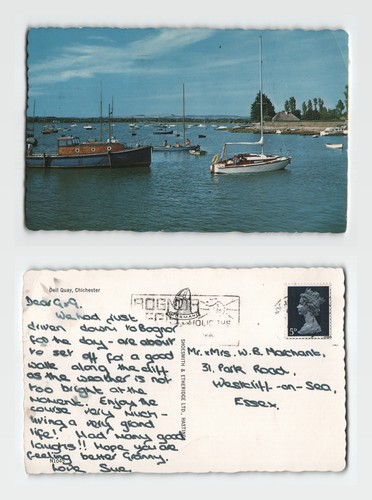 Dell Quay, Chichester
Dear G.G.
We had just
driven down to Bognor
for the day - are about
to set off for a good
walk along the cliff
as the weather is not
too bright at the
moment. Enjoy the
course very much -
living a very grand
life! Had many good
laughs!! Hope you are
feeling better Granny.
Love Sue.
SHOESMITH & ETHERIDGE LTD., HASTINGS
BOGNOR
HOLIDAYS
5p
Mr. & Mrs. W. B. Merchant,
31, Park Road,
Westcliff-on-Sea,
Essex.